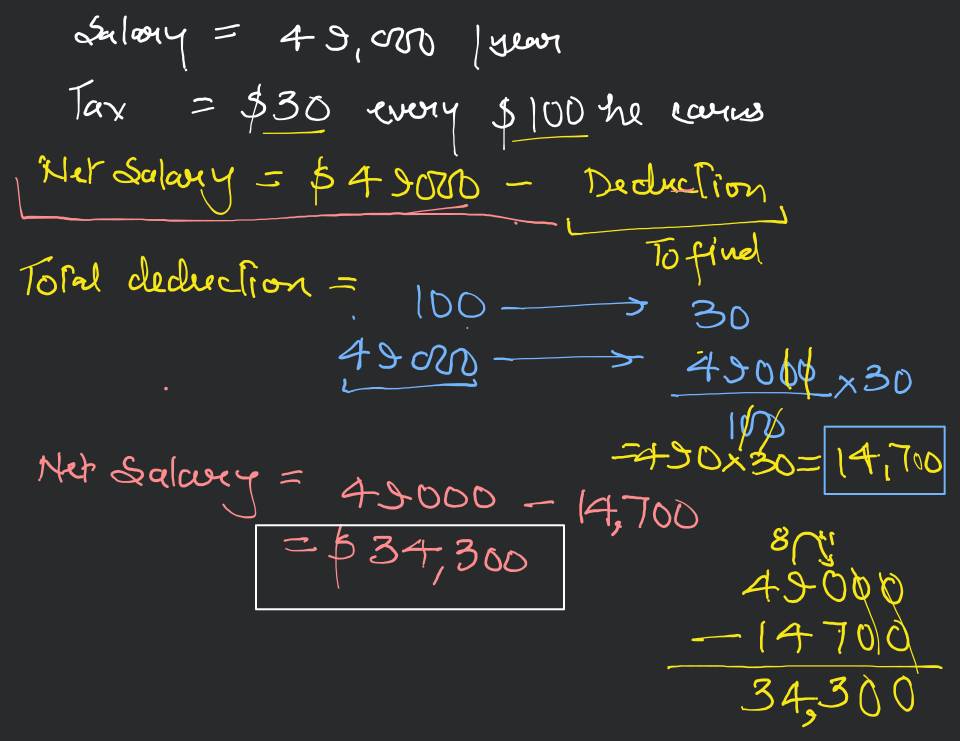 Salary = 49,000 / year
Tax = $30 every $100 he earns
Net Salary = $49000 - Deduction
To find
Total deduction =
100 → 30
49000 → 49000 × 30
100
= 490 × 30 = 14,700
Net Salary = 49000 - 14,700
= $34,300
8
49000
- 14700
34,300